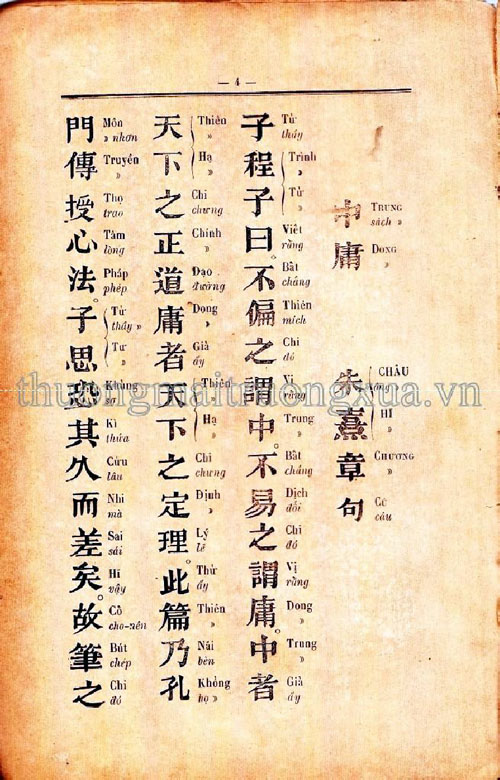 — 4 —
中庸 朱熹章句
TRUNG sách » DONG » CHÂU HI » CHƯƠNG » CÚ câu
子程子曰。不偏之謂中。不易之謂庸。中者
Tử thầy Trình » Tử » Viết rằng Bất chẳng Thiên mích Chi đó Vị rằng Trung » Bất chẳng Dịch đổi Chi đó Vị rằng Dong » Trung » Giả ấy
天下之正道庸者天下之定理。此篇乃孔
Thiên » Hạ » Chi chưng Chính » Đạo đường Dong » Giả ấy Thiên » Hạ » Chi chưng Định » Lý lẽ Thử ấy Thiên » Nãi bèn Khổng họ »
門傳授心法。子思恐其久而差矣。故筆之
Môn » nhơn Truyền » Thọ trao Tâm lòng Pháp phép Tử thầy » Tư » Khủng » Kì thửa Cửu lâu Nhi mà Sai sái Hĩ vậy Cố cho-nên Bút chép Chi đó
thuongmaitruongxua.vn